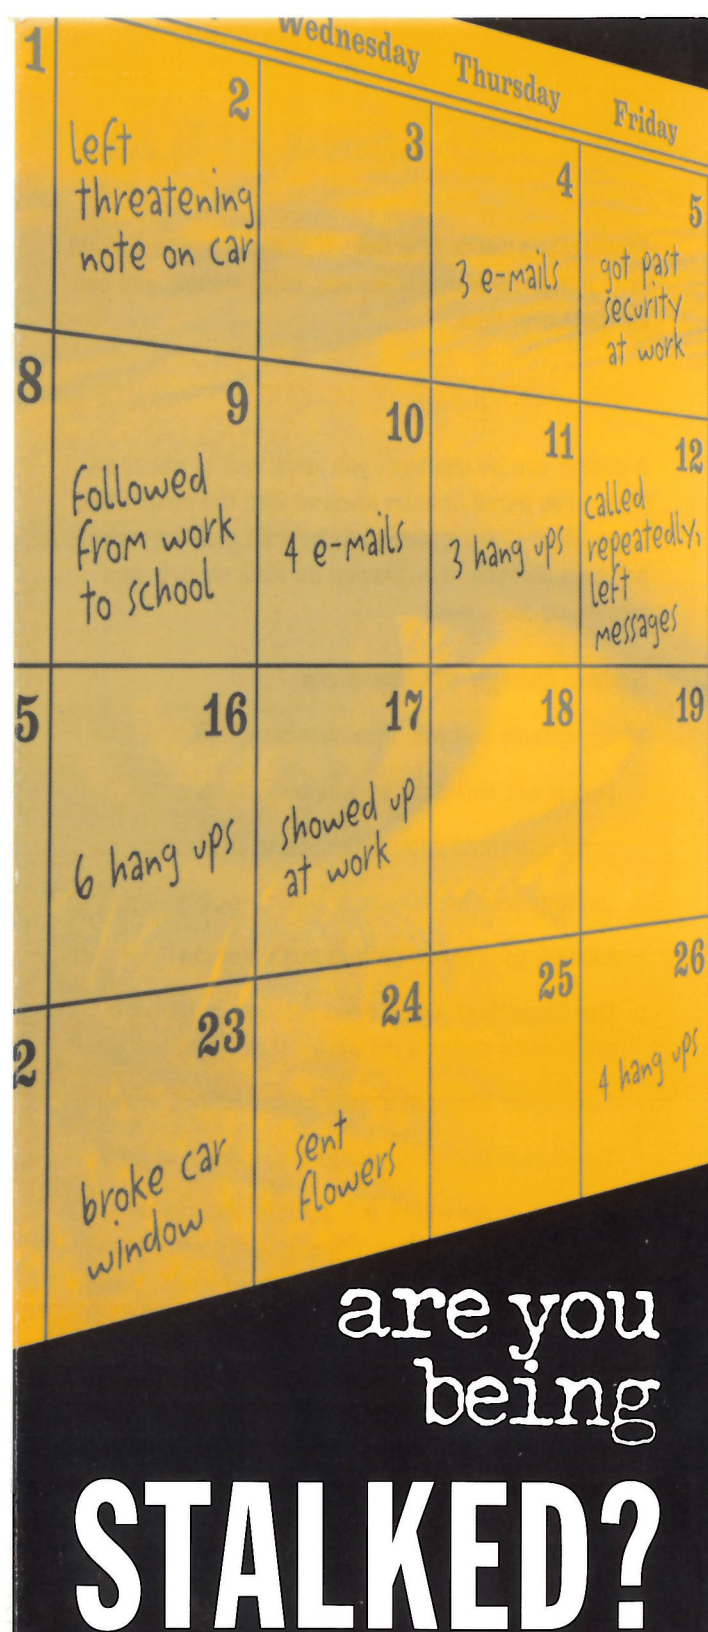 Wednesday Thursday Friday
1 2 3 4 5
left
threatening
note on car
3 e-mails
got past
security
at work
8 9 10 11 12
followed
from work
to school
4 e-mails
3 hang ups
called
repeatedly,
left
messages
5 16 17 18 19
6 hang ups
showed up
at work
2 23 24 25 26
broke car
window
sent
flowers
4 hang ups
are you
being
STALKED?